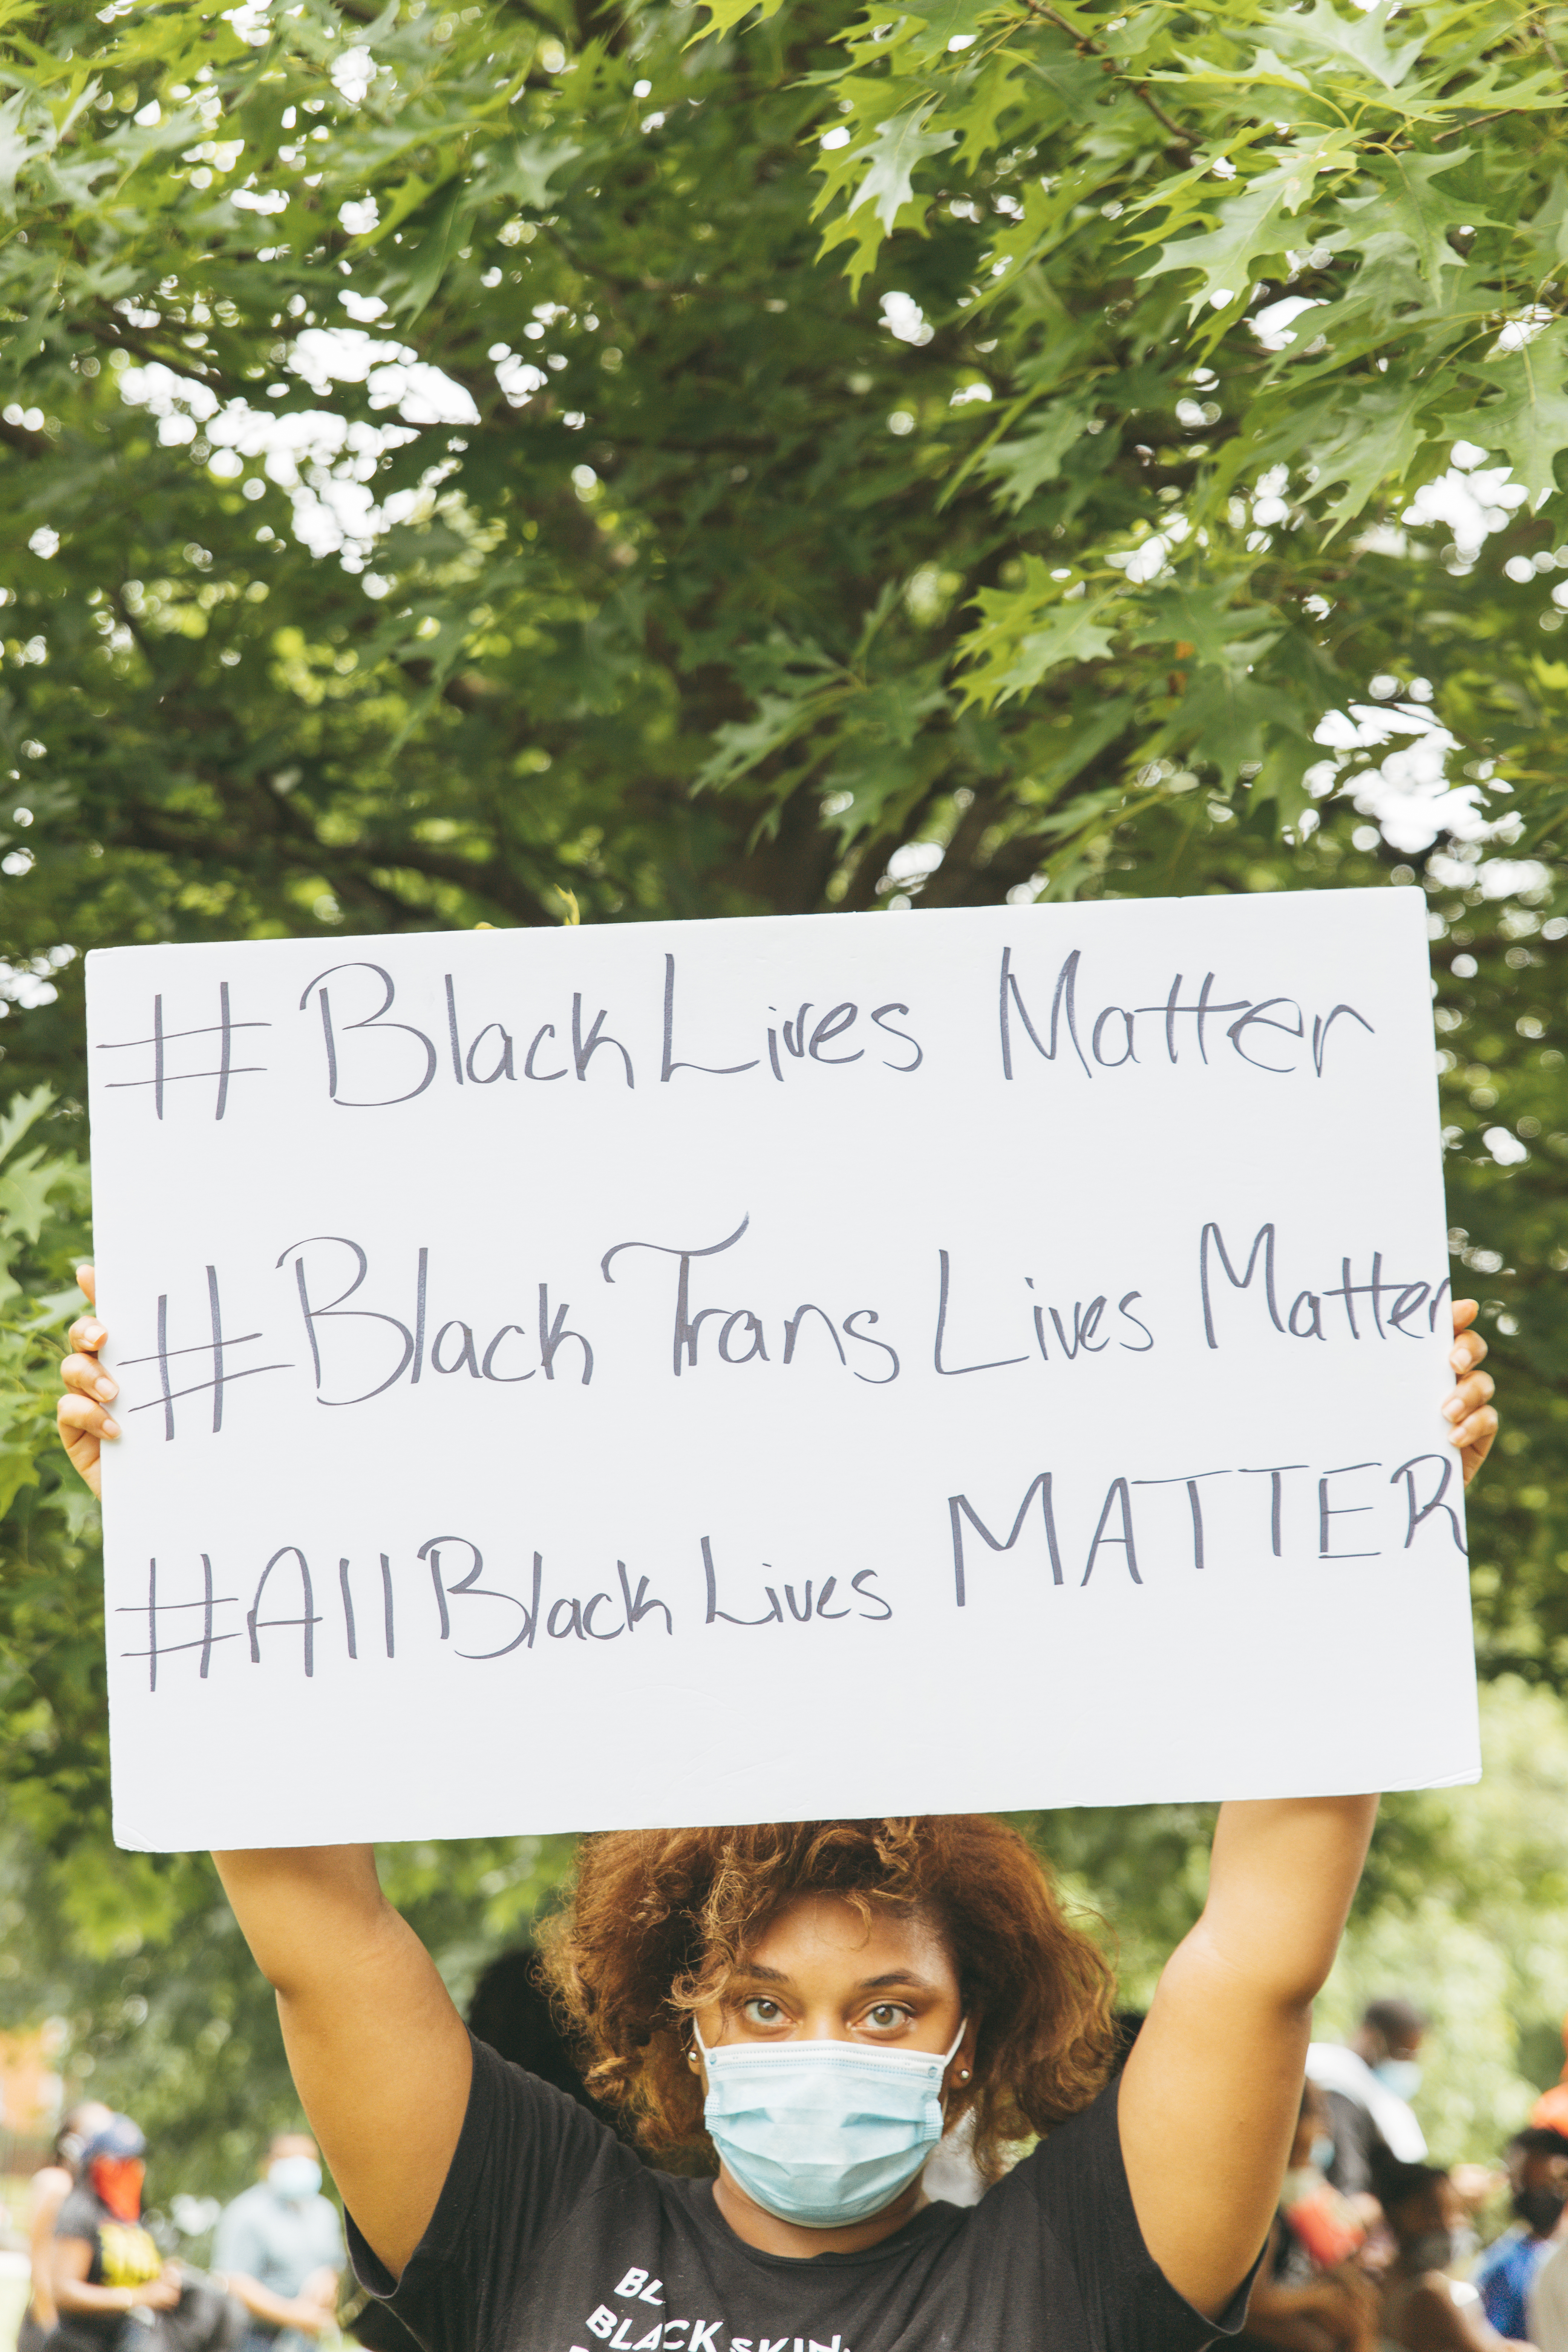 #BlackLives Matter
#BlackTransLives Matter
#AllBlackLives MATTER
BLACK SKIN.